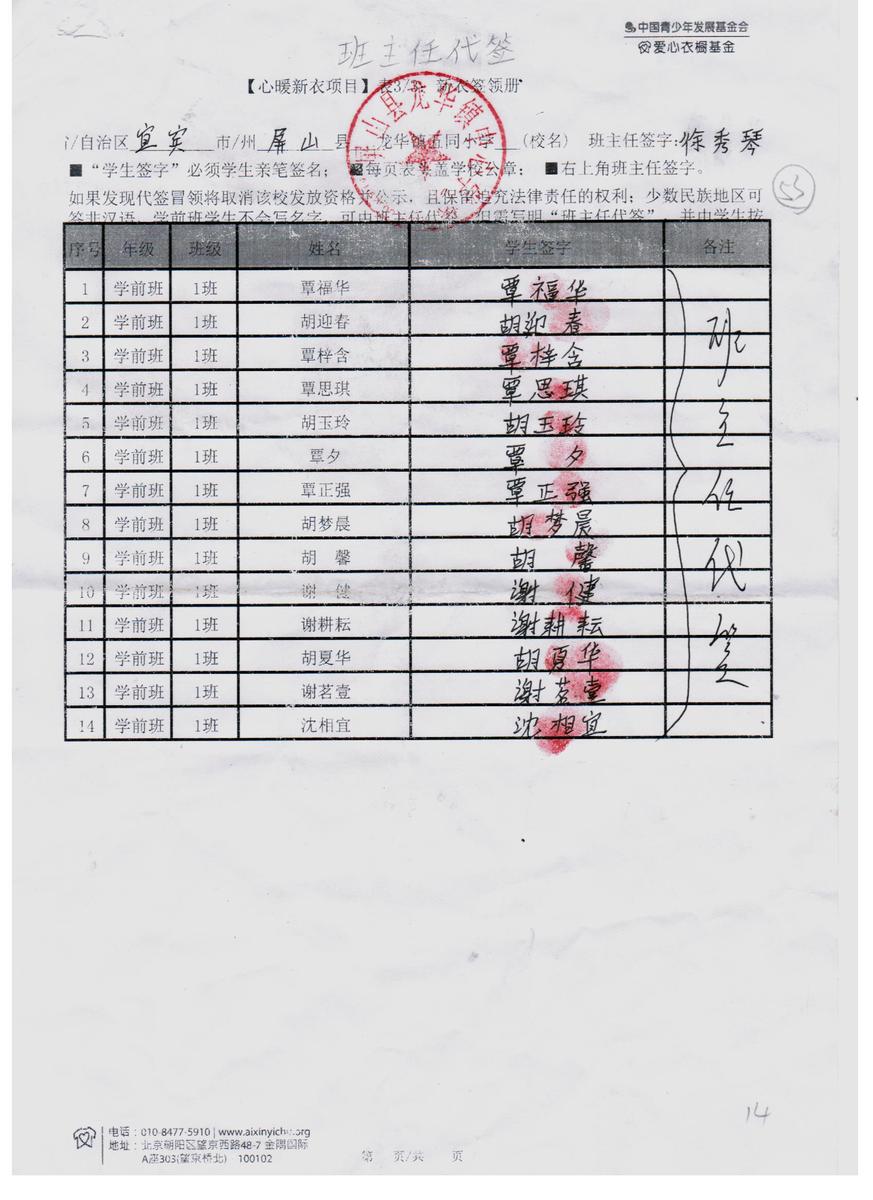 中国青少年发展基金会
爱心衣橱基金
班主任代签
【心暖新衣项目】表3/3：新衣签领册
/自治区 宜宾 市/州 屏山 县 龙华镇五同小学 (校名) 班主任签字：徐秀琴
■“学生签字”必须学生亲笔签名；■每页表头盖学校公章；■右上角班主任签字。
如果发现代签冒领将取消该校发放资格并公示，且保留追究法律责任的权利；少数民族地区可
签非汉语，学前班学生不会写名字，可由班主任代签，但需写明“班主任代签”，并由学生按
屏山县龙华镇中心
序号 年级 班级 姓名 学生签字 备注
1 学前班 1班 覃福华 覃福华
2 学前班 1班 胡迎春 胡迎春
3 学前班 1班 覃梓含 覃梓含
4 学前班 1班 覃思琪 覃思琪
5 学前班 1班 胡玉玲 胡玉玲
6 学前班 1班 覃夕 覃夕
7 学前班 1班 覃正强 覃正强
8 学前班 1班 胡梦晨 胡梦晨
9 学前班 1班 胡 馨 胡 馨
10 学前班 1班 谢 健 谢 健
11 学前班 1班 谢耕耘 谢耕耘
12 学前班 1班 胡夏华 胡夏华
13 学前班 1班 谢茗壹 谢茗壹
14 学前班 1班 沈相宜 沈相宜
班主任代签
14
电话：010-8477-5910 | www.aixinyichu.org
地址：北京朝阳区望京西路48-7 金隅国际
A座303(望京桥北) 100102
第 页/共 页